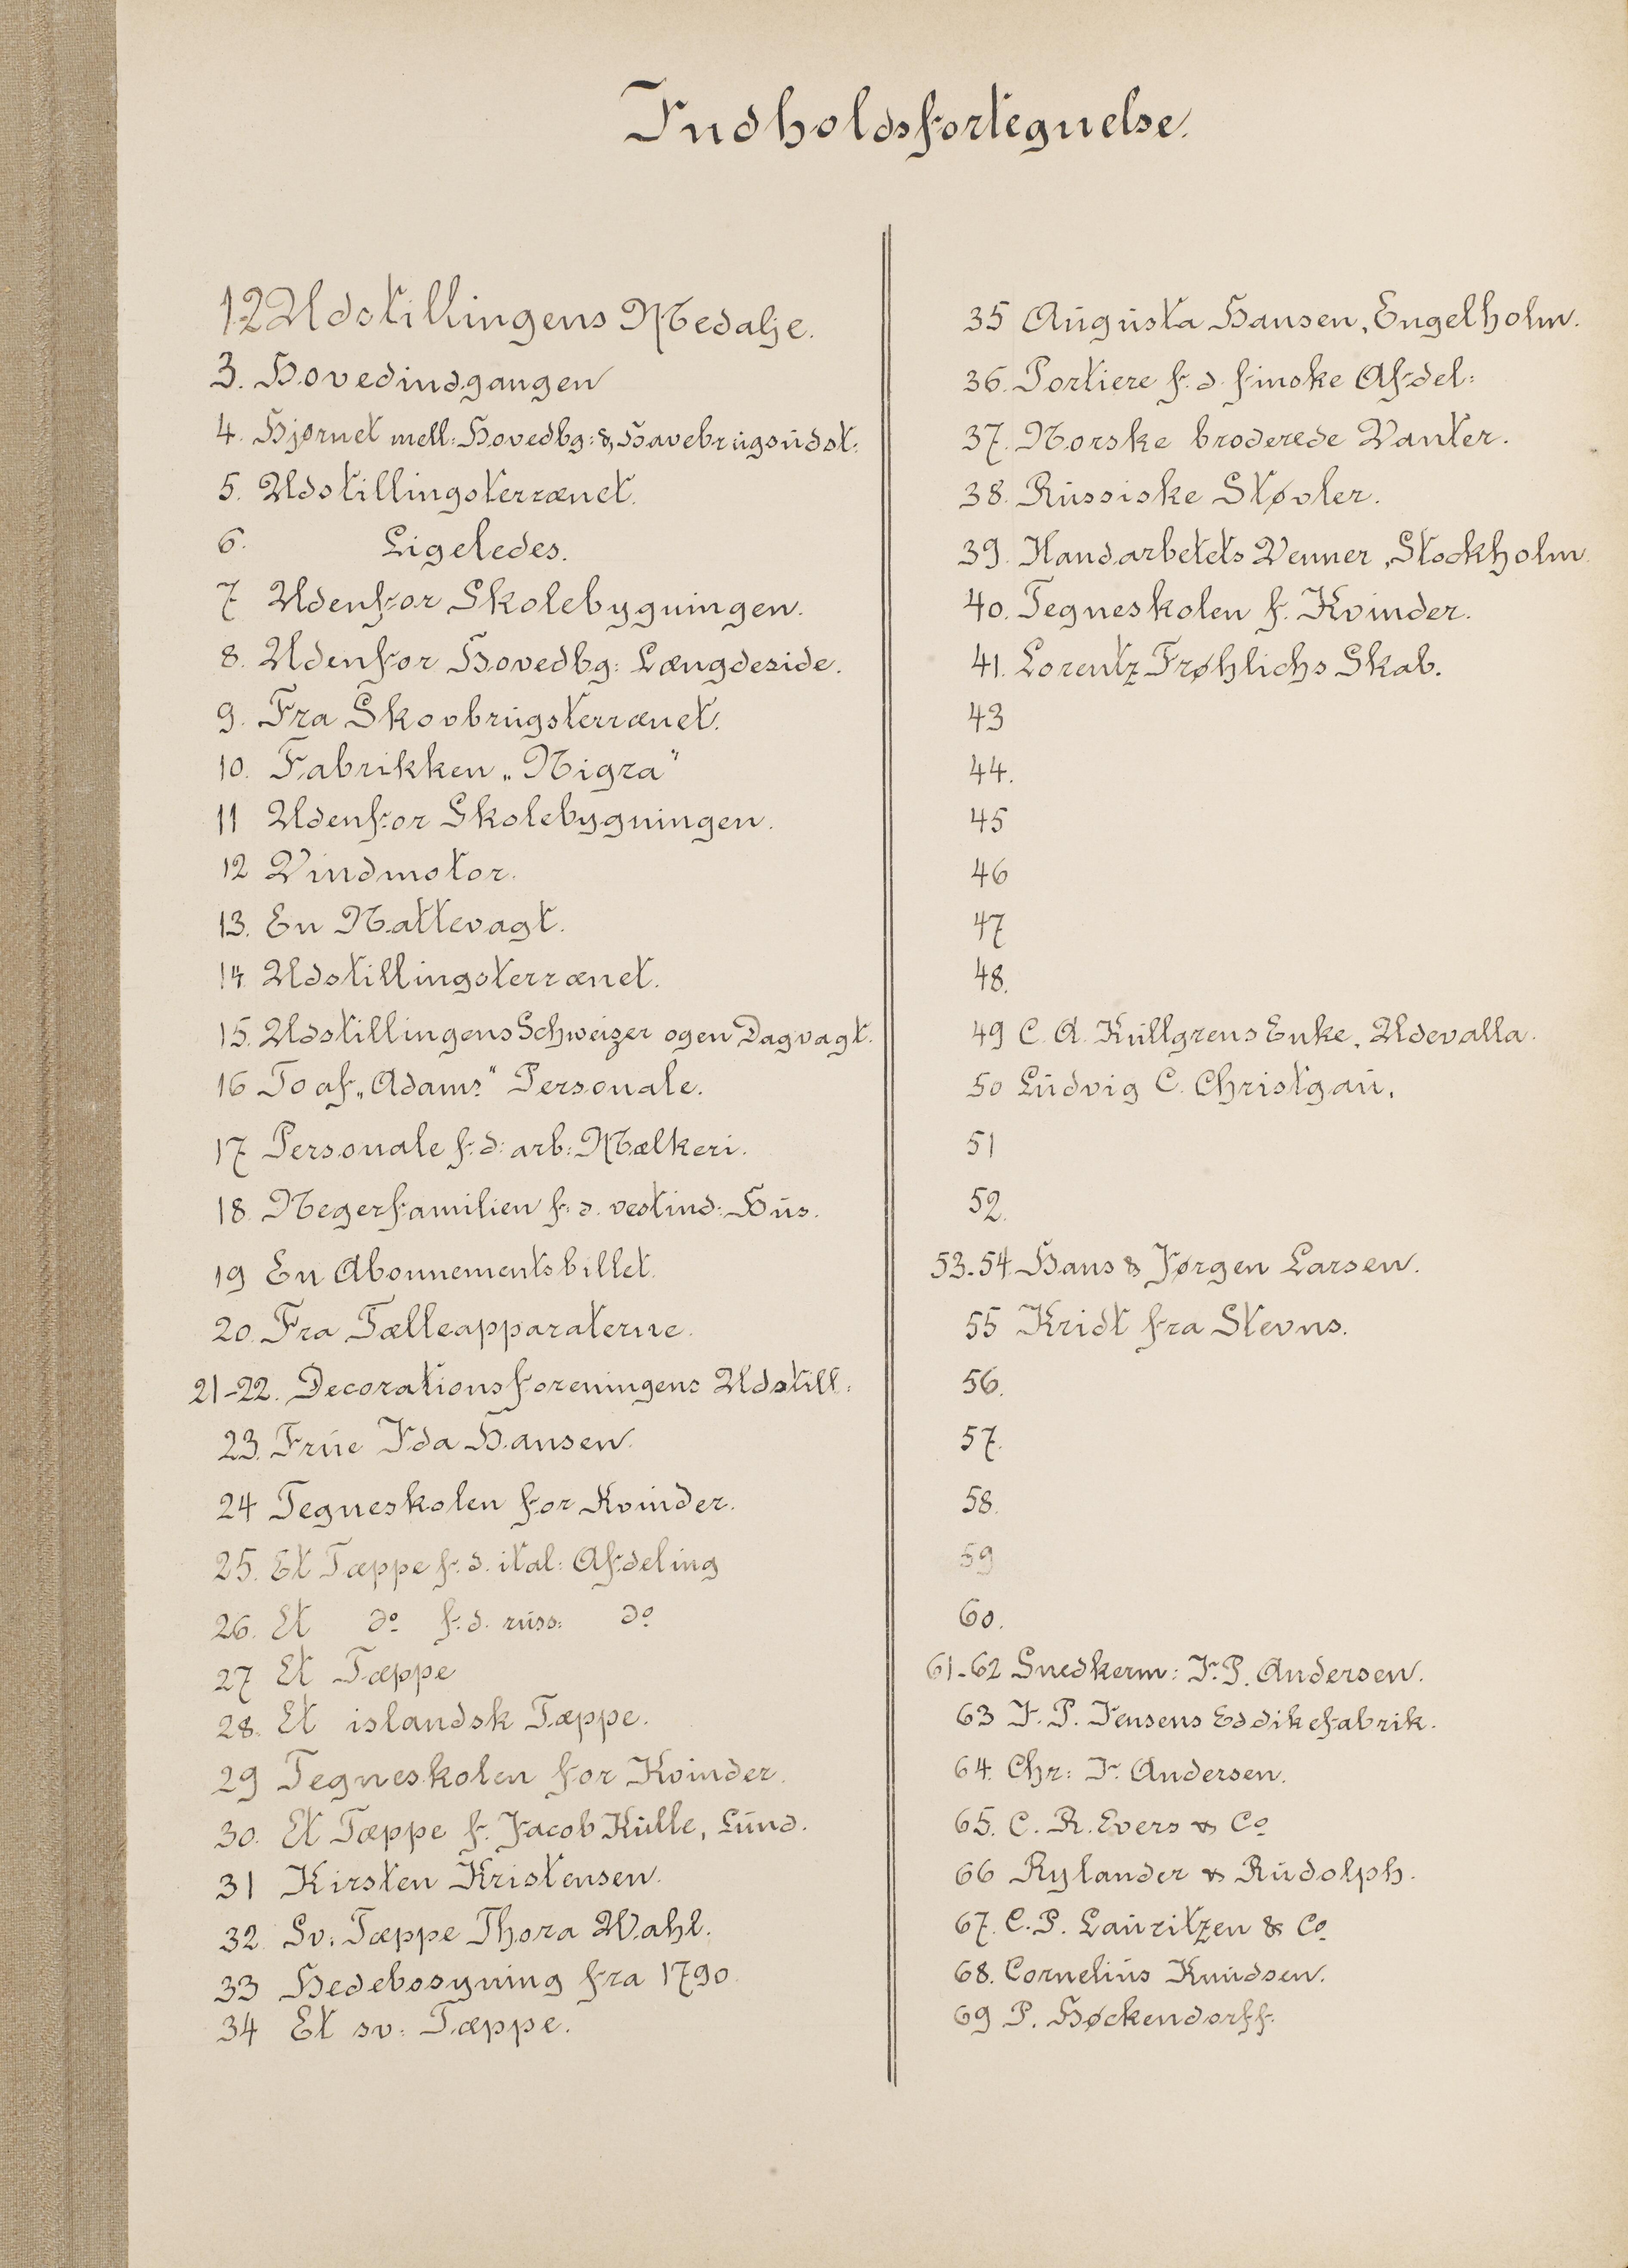 Indholdsfortegnelse.
1-2 Udstillingens Medalje.
3. Hovedindgangen
4. Hjørnet mell: Hovedbg: & Havebrugsudst:
5. Udstillingsterrænet.
6. Ligeledes.
7 Udenfor Skolebygningen.
8. Udenfor Hovedbg: Længdeside.
9. Fra Skovbrugsterrænet.
10. Fabrikken „Nigra“
11 Udenfor Skolebygningen.
12 Vindmotor.
13. En Nattevagt.
14 Udstillingsterrænet.
15. Udstillingens Schweizer og en Dagvagt.
16 To af „Adams“ Personale.
17 Personale f. d. arb: Mælkeri.
18. Negerfamilien f. d. vestind: Hus.
19 En Abonnementsbillet.
20. Fra Tælleapparaterne.
21-22. Decorationsforeningens Udstill:
23. Frue Ida Hansen.
24 Tegneskolen for Kvinder.
25. Et Tæppe f. d. ital: Afdeling
26. Et do f. d. russ: do
27 Et Tæppe
28. Et islandsk Tæppe.
29 Tegneskolen for Kvinder.
30. Et Tæppe f. Jacob Kulle, Lund.
31 Kirsten Kristensen.
32. Sv: Tæppe Thora Wahl.
33 Hedebosyning fra 1790
34 Et sv: Tæppe.
35 Augusta Hansen, Engelholm.
36. Portiere f. d. finske Afdel:
37. Norske broderede Vanter.
38. Russiske Støvler.
39. Handarbetets Venner, Stockholm.
40. Tegneskolen f. Kvinder.
41. Lorentz Frøhlichs Skab.
43
44.
45
46
47
48.
49 C. A. Kullgrens Enke, Udevalla.
50 Ludvig C. Christgau.
51
52.
53-54 Hans & Jørgen Larsen.
55 Kridt fra Stevns.
56.
57.
58.
59
60.
61-62 Snedkerm: I. P. Andersen.
63 I. P. Jensens Eddikefabrik.
64. Chr: I. Andersen.
65. C. R. Evers & Co
66 Rylander & Rudolph.
67. C. P. Lauritzen & Co
68. Cornelius Knudsen.
69 P. Høckendorff.